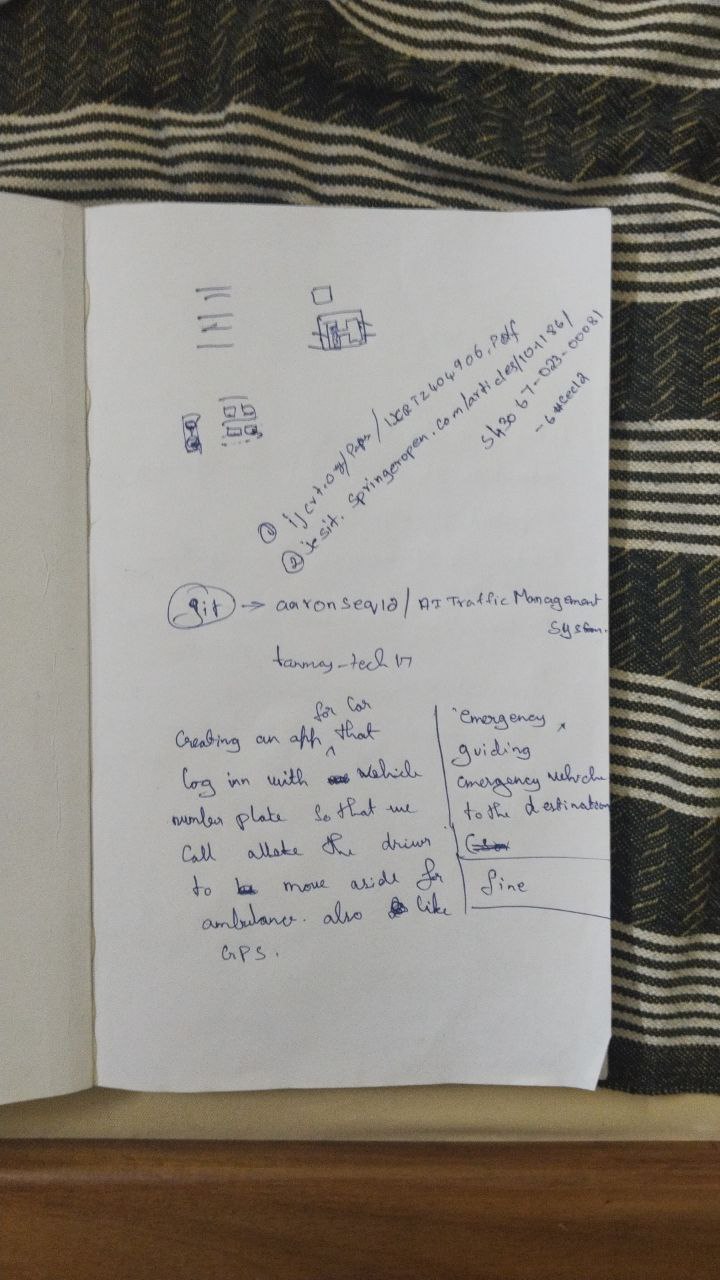 ① ijcrt.org/Papers/IJCRT2404906.Pdf
② jesit.springeropen.com/articles/10.1186/
s43067-023-00081
-6 #sec12
git → aaronseq12/AITrafficManagement
System.
tanmay-tech17
for Car
Creating an app ^ that
log inn with Vehicle
number plate so that we
Call the driver
to move aside for
ambulance. also like
GPS.
emergency
guiding
emergency vehicle
to the destination
fine